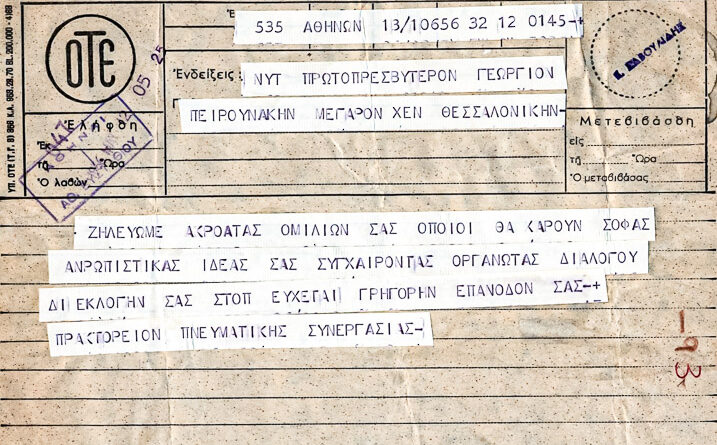 535 ΑΘΗΝΩΝ 13/10656 32 12 0145-+
ΟΤΕ
05 25
Ἐνδείξεις
ΝΥΤ ΠΡΩΤΟΠΡΕΣΒΥΤΕΡΟΝ ΓΕΩΡΓΙΟΝ
ΠΕΙΡΟΥΝΑΚΗΝ ΜΕΓΑΡΟΝ ΧΕΝ ΘΕΣΣΑΛΟΝΙΚΗΝ-
Ἐλήφθη
Ἐκ
τῇ Ὥρα
Ὁ λαβών
Μετεβιβάσθη
εἰς
τῇ Ὥρα
Ὁ μεταβιβάσας
ΖΗΛΕΥΩΜΕ ΑΚΡΟΑΤΑΣ ΟΜΙΛΙΩΝ ΣΑΣ ΟΠΟΙΟΙ ΘΑ ΚΑΡΟΥΝ ΣΟΦΑΣ
ΑΝΡΩΠΙΣΤΙΚΑΣ ΙΔΕΑΣ ΣΑΣ ΣΥΓΧΑΙΡΟΝΤΑΣ ΟΡΓΑΝΩΤΑΣ ΔΙΑΛΟΓΟΥ
ΔΙ ΕΚΛΟΓΗΝ ΣΑΣ ΣΤΟΠ ΕΥΧΕΤΑΙ ΓΡΗΓΟΡΗΝ ΕΠΑΝΟΔΟΝ ΣΑΣ-+
ΠΡΑΚΤΟΡΕΙΟΝ ΠΝΕΥΜΑΤΙΚΗΣ ΣΥΝΕΡΓΑΣΙΑΣ-
-93